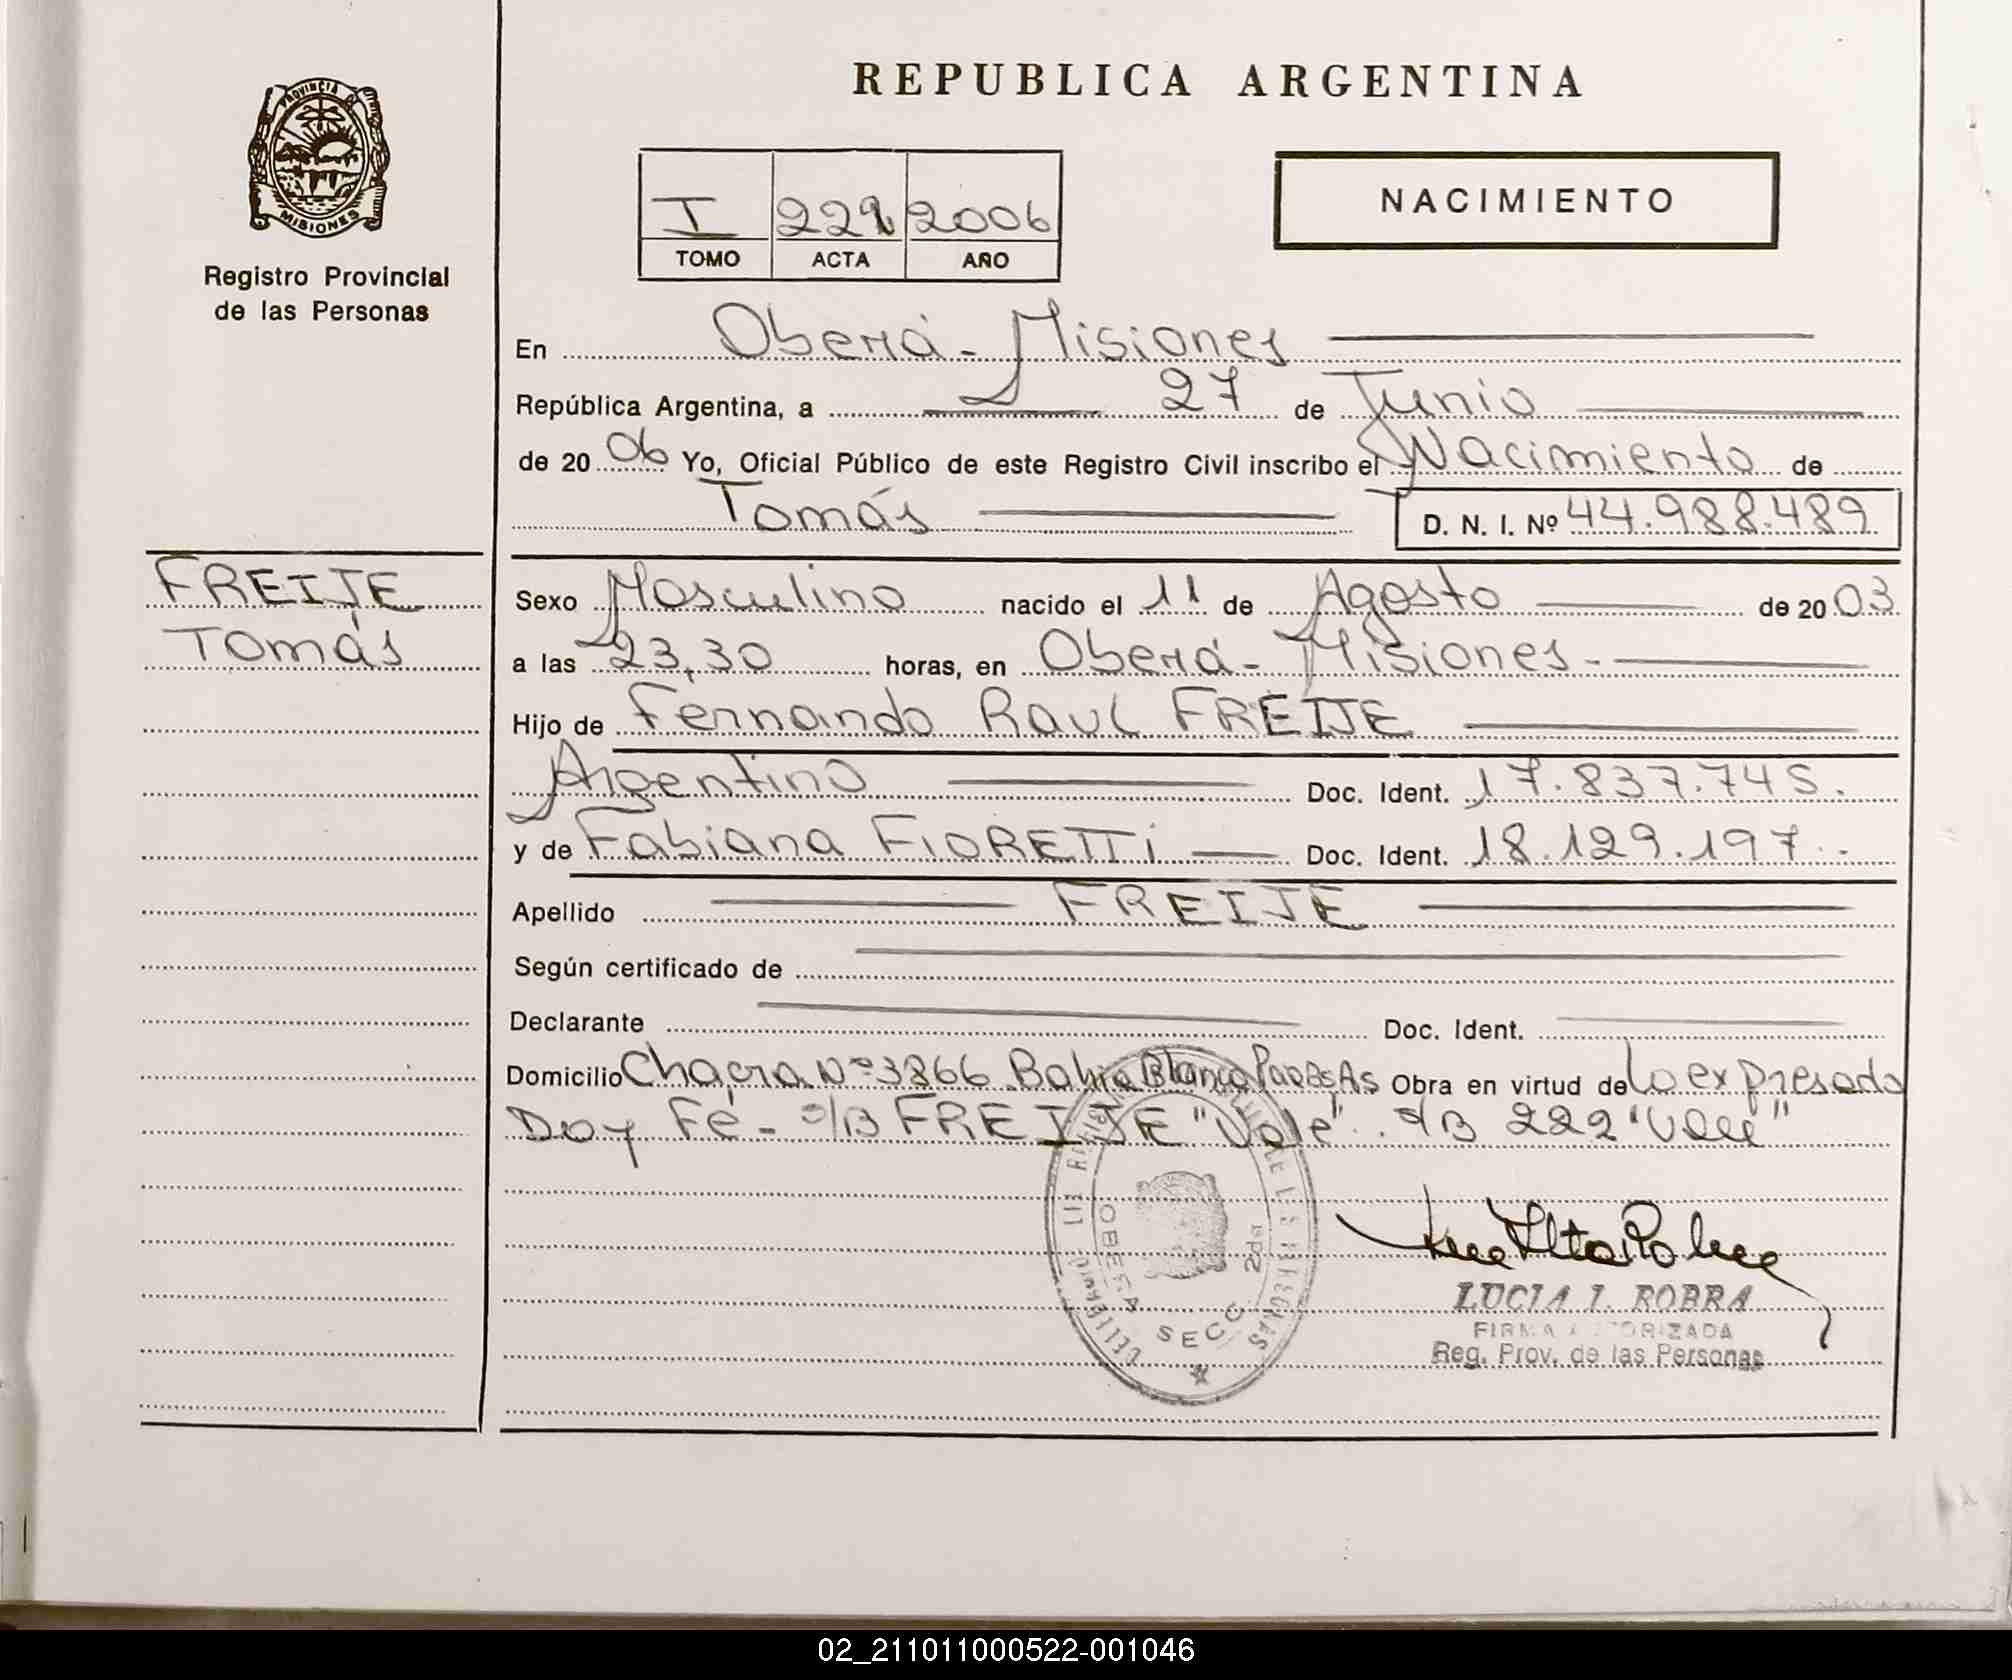 REPUBLICA ARGENTINA
PROVINCIA DE
MISIONES
Registro Provincial
de las Personas
I 222 2006
TOMO ACTA AÑO
NACIMIENTO
En Oberá - Misiones
República Argentina, a 27 de Junio
de 2006 Yo, Oficial Público de este Registro Civil inscribo el Nacimiento de
Tomás D. N. I. Nº 44.988.489
FREIJE
Tomás
Sexo Masculino nacido el 11 de Agosto de 2003
a las 23,30 horas, en Oberá - Misiones -
Hijo de Fernando Raul FREIJE
Argentino Doc. Ident. 17.837.745.
y de Fabiana FIORETTi Doc. Ident. 18.129.197.-
Apellido FREIJE
Según certificado de
Declarante Doc. Ident.
Domicilio Chacra Nº 3866 Bahia Blanca Bs As Obra en virtud de Lo expresado
Doy Fé - S/B FREIJE "Vale". S/B 222 "Vale"
OBERA SECC. 2da
LUCIA I. ROBRA
FIRMA AUTORIZADA
Reg. Prov. de las Personas
02_211011000522-001046